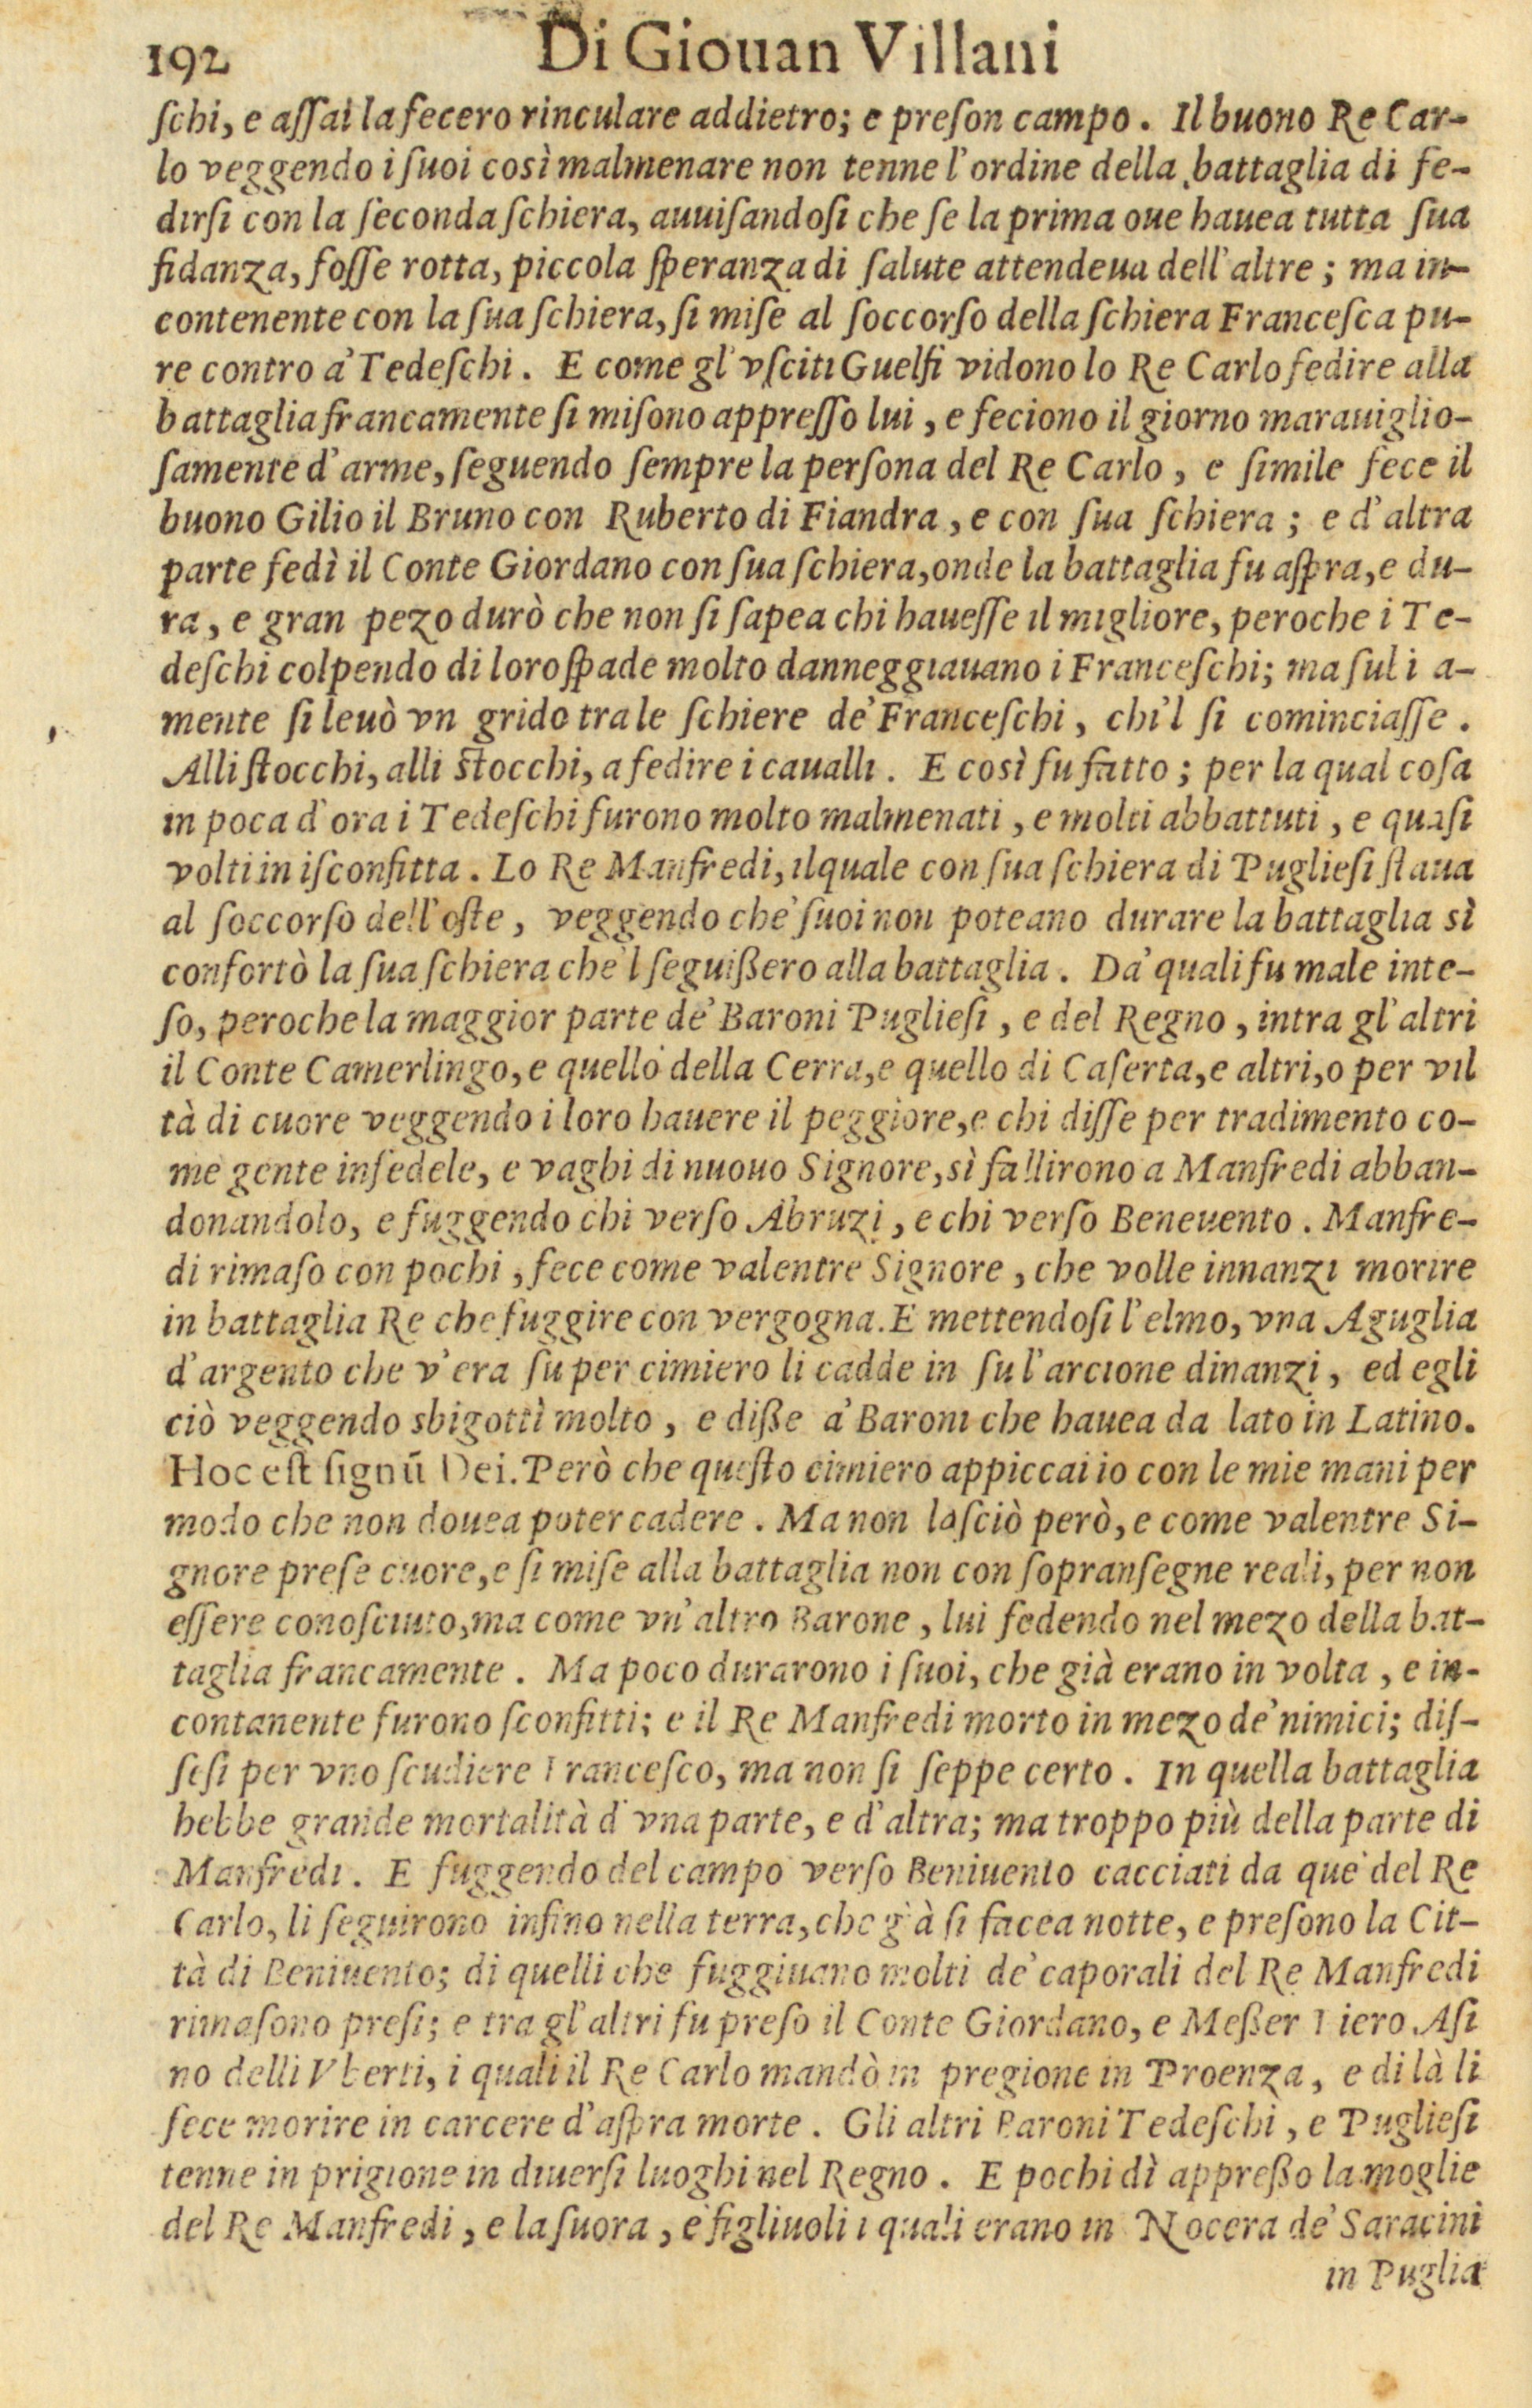 192 Di Giouan Villani
ſchi, e aſſai la fecero rinculare addietro; e preſon campo. Il buono Re Car-
lo veggendo i ſuoi così malmenare non tenne l'ordine della battaglia di fe-
dirſi con la ſeconda ſchiera, auuiſandoſi che ſe la prima oue hauea tutta ſua
fidanza, foſſe rotta, piccola ſperanza di ſalute attendeua dell'altre; ma in-
contenente con la ſua ſchiera, ſi miſe al ſoccorſo della ſchiera Franceſca pu-
re contro a' Tedeſchi. E come gl'vſciti Guelfi vidono lo Re Carlo fedire alla
battaglia francamente ſi miſono appreſſo lui, e feciono il giorno marauiglio-
ſamente d'arme, ſeguendo ſempre la perſona del Re Carlo, e ſimile fece il
buono Gilio il Bruno con Ruberto di Fiandra, e con ſua ſchiera; e d'altra
parte fedì il Conte Giordano con ſua ſchiera, onde la battaglia fu aſpra, e du-
ra, e gran pezo durò che non ſi ſapea chi haueſſe il migliore, peroche i Te-
deſchi colpendo di loro ſpade molto danneggiauano i Franceſchi; ma ſubita-
mente ſi leuò vn grido tra le ſchiere de' Franceſchi, chi'l ſi cominciaſſe.
Alli ſtocchi, alli ſtocchi, a fedire i caualli. E così fu fatto; per la qual coſa
in poca d'ora i Tedeſchi furono molto malmenati, e molti abbattuti, e quaſi
volti in iſconfitta. Lo Re Manfredi, ilquale con ſua ſchiera di Puglieſi ſtaua
al ſoccorſo dell'oſte, veggendo che' ſuoi non poteano durare la battaglia sì
confortò la ſua ſchiera che'l ſeguißero alla battaglia. Da' quali fu male inte-
ſo, peroche la maggior parte de' Baroni Puglieſi, e del Regno, intra gl'altri
il Conte Camerlingo, e quello della Cerra, e quello di Caſerta, e altri, o per vil
tà di cuore veggendo i loro hauere il peggiore, e chi diſſe per tradimento co-
me gente infedele, e vaghi di nuouo Signore, sì fallirono a Manfredi abban-
donandolo, e fuggendo chi verſo Abruzi, e chi verſo Beneuento. Manfre-
di rimaſo con pochi, fece come valentre Signore, che volle innanzi morire
in battaglia Re che fuggire con vergogna. E mettendoſi l'elmo, vna Aguglia
d'argento che v'era ſu per cimiero li cadde in ſu l'arcione dinanzi, ed egli
ciò veggendo sbigottì molto, e diße a' Baroni che hauea da lato in Latino.
Hoc eſt ſignū Dei. Però che queſto cimiero appiccai io con le mie mani per
modo che non douea poter cadere. Ma non laſciò però, e come valentre Si-
gnore preſe cuore, e ſi miſe alla battaglia non con ſopranſegne reali, per non
eſſere conoſciuto, ma come vn'altro Barone, lui fedendo nel mezo della bat-
taglia francamente. Ma poco durarono i ſuoi, che già erano in volta, e in-
contanente furono ſconfitti; e il Re Manfredi morto in mezo de' nimici; diſ-
ſeſi per vno ſcudiere Franceſco, ma non ſi ſeppe certo. In quella battaglia
hebbe grande mortalità d'vna parte, e d'altra; ma troppo più della parte di
Manfredi. E fuggendo del campo verſo Beniuento cacciati da que' del Re
Carlo, li ſeguirono infino nella terra, che già ſi facea notte, e preſono la Cit-
tà di Beniuento; di quelli che fuggiuano molti de' caporali del Re Manfredi
rimaſono preſi; e tra gl'altri fu preſo il Conte Giordano, e Meßer Piero Aſi
no delli Vberti, i quali il Re Carlo mandò in pregione in Proenza, e di là li
fece morire in carcere d'aſpra morte. Gli altri Baroni Tedeſchi, e Puglieſi
tenne in prigione in diuerſi luoghi nel Regno. E pochi dì appreßo la moglie
del Re Manfredi, e la ſuora, e' figliuoli i quali erano in Nocera de' Saracini
in Puglia